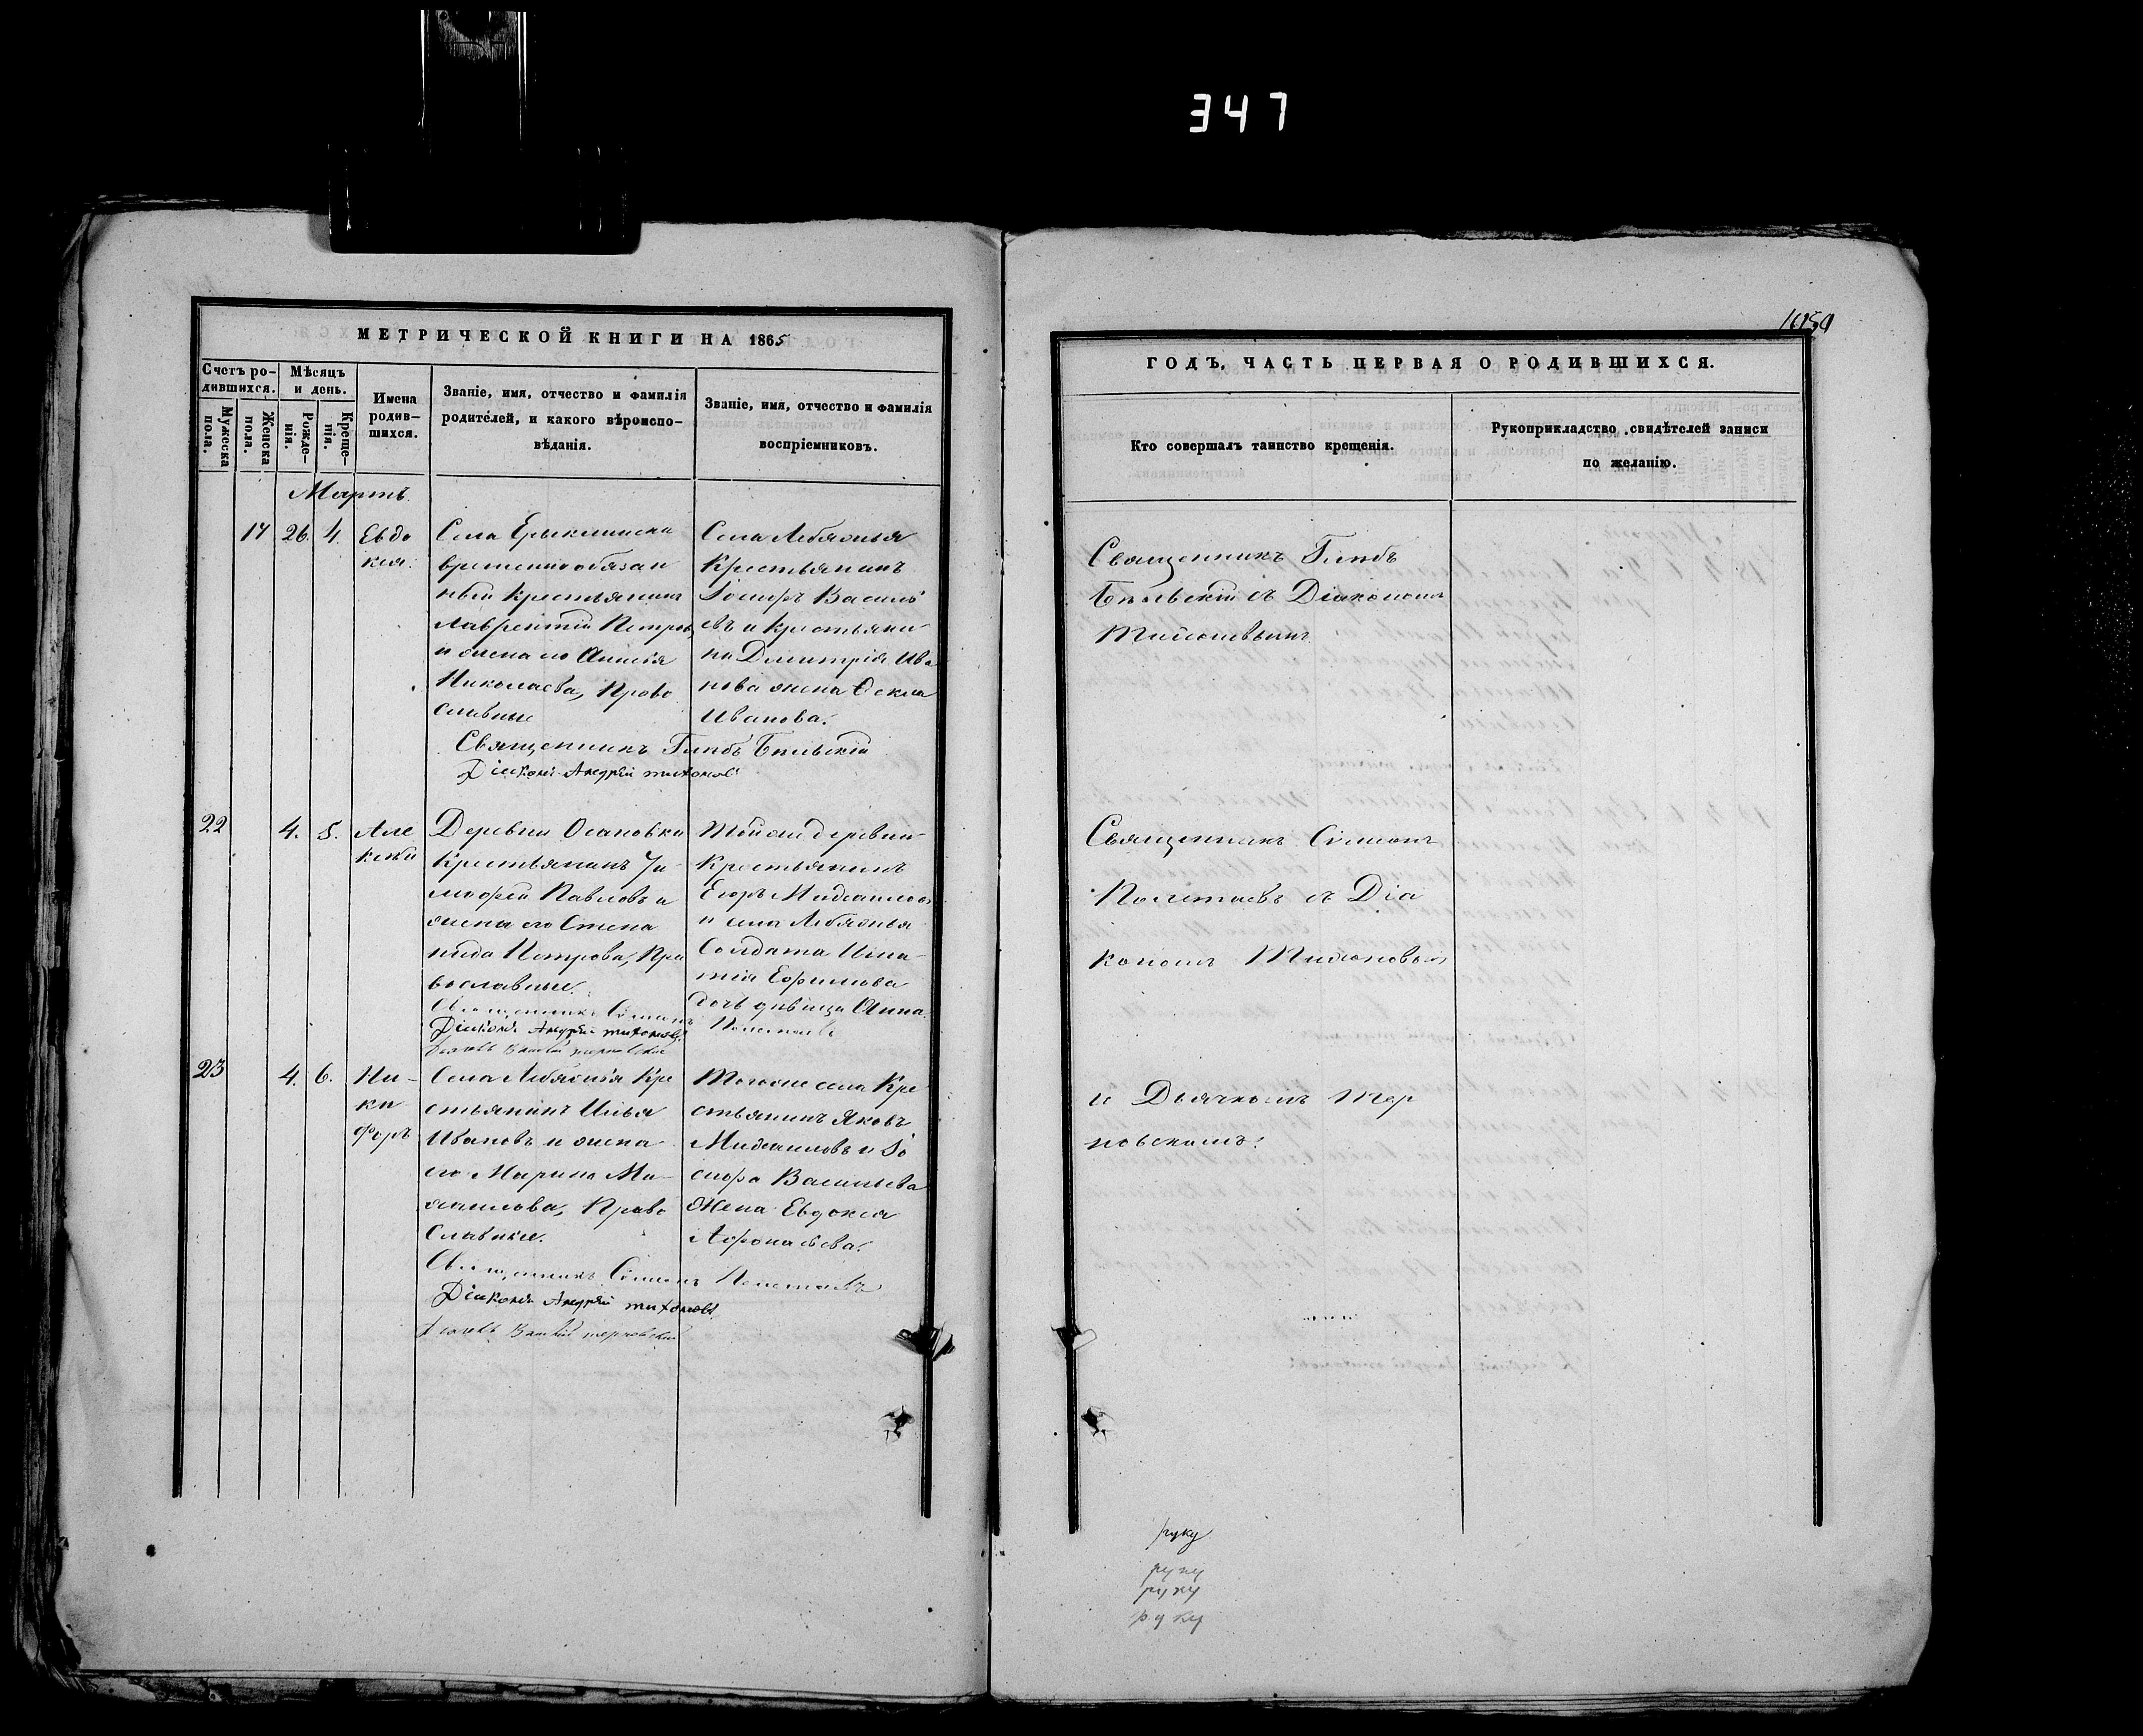 347
МЕТРИЧЕСКОЙ КНИГИ НА 1865
Счетъ ро-
дившихся.
Мѣсяцъ
и день.
Мужеска
пола.
Женска
пола.
Рожде-
нія.
Креще-
нія.
Имена
родив-
шихся.
Званіе, имя, отчество и фамилія
родителей, и какого вѣроиспо-
вѣданія.
Званіе, имя, отчество и фамилія
воспріемниковъ.
Мартъ.
17 26. 4. Евдо
кія.
Села
временнообязан
ный крестьянинъ
Лаврентій Петровъ
и жена его
Николаева, Право
славные
Села Лебяжья
Крестьянинъ
Іосифъ Василь
евъ и крестьяни
на Димитрія Ива
нова жена Ѳекла
Иванова.
Священникъ Глебъ Бельскій
Діаконъ Андрей тихоновъ
22 4. 5. Але
ксѣй
Деревни Осановки
Крестьянинъ Ти
мофей Павловъ и
жена его Степа
нида Петрова, Пра
вославные.
Тойже деревни
Крестьянинъ
Егоръ Михайловъ
и села Лебяжья
Солдата Игна
тія Ефимова
дочь дѣвица Анна.
Священникъ Симеонъ Полетаевъ
Діаконъ Андрей тихоновъ
Дьячекъ терновскій
23 4. 6. Ни-
ки
форъ
Села Лебяжья Кре
стьянинъ Илья
Ивановъ и жена
его Марина Ми
хаилова, Право
славные.
Тогоже села Кре
стьянинъ Яковъ
Михаиловъ и Іо
сифа Васильева
Жена Евдокія
Афонасьева.
Священникъ Симеонъ Полетаевъ
Діаконъ Андрей тихоновъ
Дьячекъ терновскій
ГОДЪ, ЧАСТЬ ПЕРВАЯ О РОДИВШИХСЯ.
Кто совершалъ таинство крещенія.
Рукоприкладство свидѣтелей записи
по желанію.
Священникъ Глебъ
Бельскій съ Діакономъ
Тихоновымъ
Священникъ Симеонъ
Полетаевъ съ Діа
кономъ Тихоновымъ
и Дьячкомъ Тер
новскимъ.
руку
руку
руку
руку